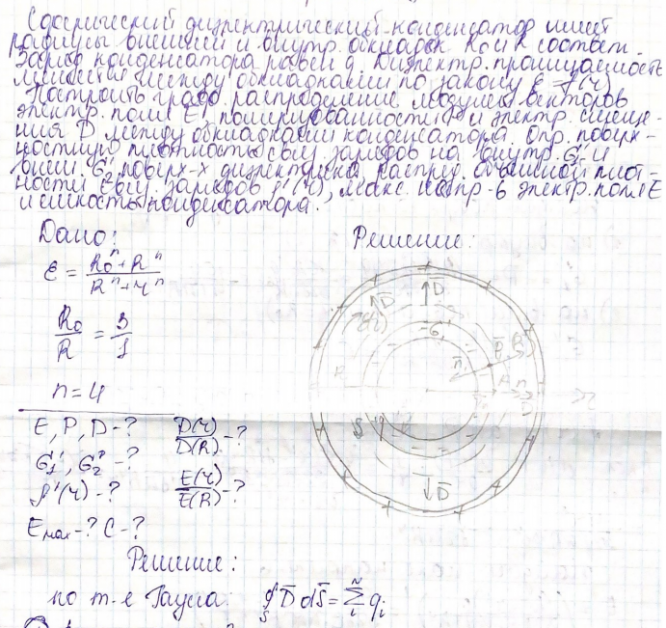 Сферический диэлектрический конденсатор имеет
радиусы внешней и внутр. обкладок R₀ и R соответ.
Заряд конденсатора равен q. Диэлектр. проницаемость
меняется между обкладками по закону ε = f(r)
Построить граф. распределение модулей векторов
электр. поля E, поляризованности P и электр. смеще-
ния D между обкладками конденсатора. Опр. поверх-
ностную плотность связ. зарядов на внутр. σ₁' и
внеш. σ₂' поверх-х диэлектрика, распред. объемной плот-
ности связ. зарядов ρ'(r), макс. напр-ь электр. поля E
и емкость конденсатора.
Дано: Решение:
ε = (R₀ⁿ + Rⁿ)/(Rⁿ + rⁿ)
R₀/R = 3/1
n = 4
E, P, D - ? D(r)/D(R) - ?
σ₁', σ₂' - ?
ρ'(r) - ? E(r)/E(R) - ?
Eмах - ? C - ?
Решение:
по т-е Гаусса: ∮ D̄ dS̄ = Σ qᵢ